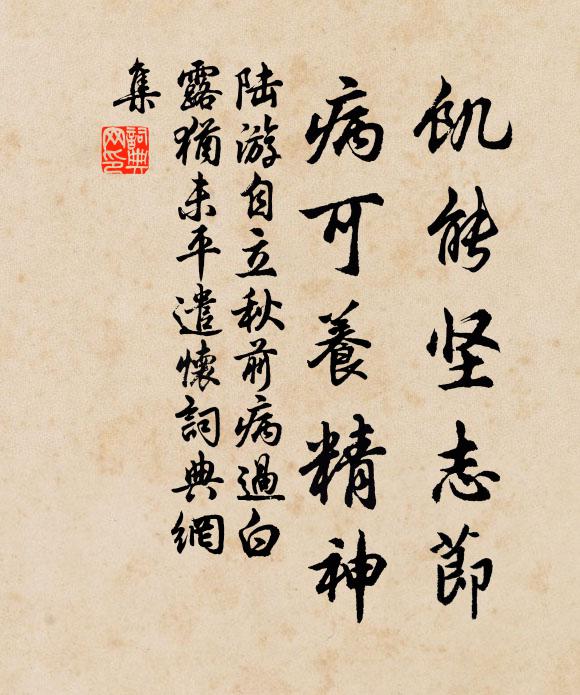 飢能坚志節
病可養精神
陆游自立秋前病過白
露猶未平遣懷詞典網
集
詞典网印